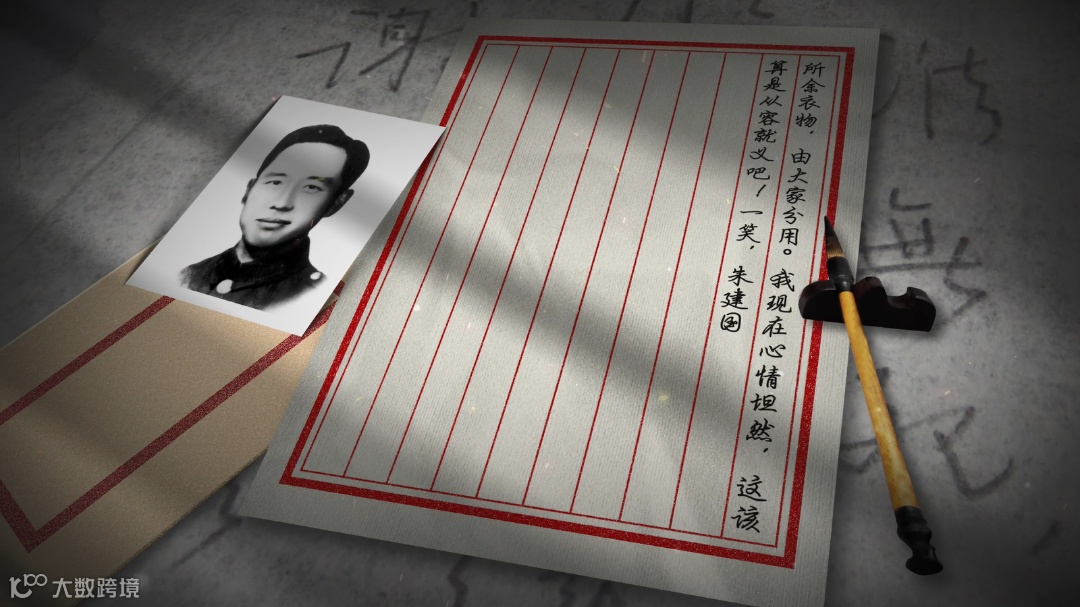 所余衣物，由大家分用。我现在心情坦然，这该
算是从容就义吧！一笑，
朱建国
大数跨境